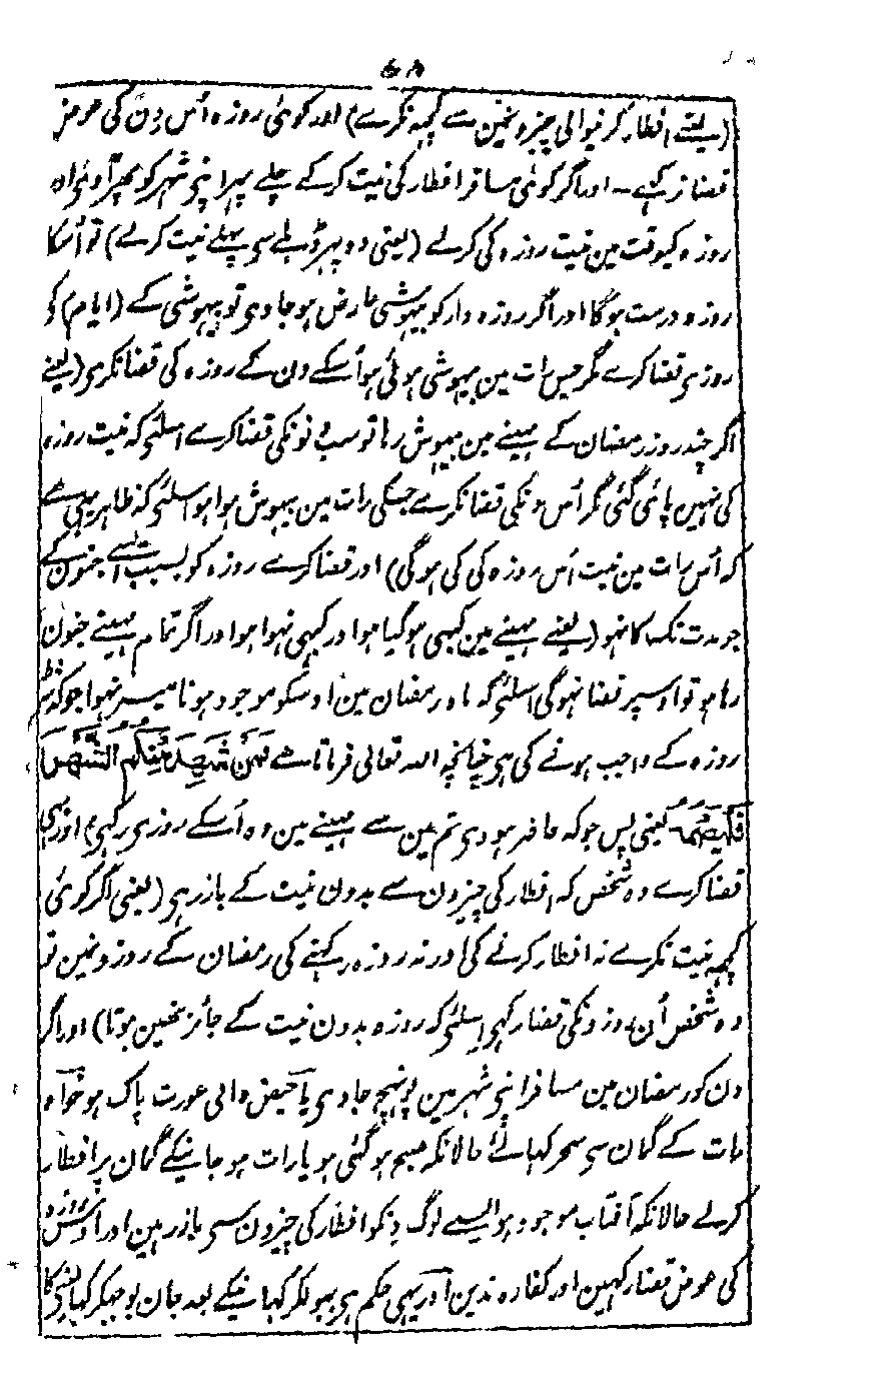 ۶۸
(یعنے افطار کرنیوالی چیزونمین سے کچہہ نکرے) اور کوئی روزہ اُس دِن کی عوض
قضا نرکہے۔ اور اگر کوئی مسافر افطار کی نیت کرکے چلے پہر اپنی شہر کو پہر آوے اور
روزہ کیوقت مین نیت روزہ کی کرلے (یعنی دوپہر ڈہلے سی پہلے نیت کرلے) تو اُسکا
روزہ درست ہوگا اور اگر روزہ دار کو بیہوشی عارض ہوجاوی تو بیہوشی کے (ایام) کو
روزی قضا کرے مگر جس رات مین بیہوشی ہوئی ہو اُسکے دن کے روزہ کی قضا نکری (یعنے
اگر چند روز رمضان کے مہینے مین بیہوش رہا تو سب دنونکی قضا کرے اسلئی کہ نیت روزہ
کی نہین پائی گئی مگر اُس دنکی قضا نکرے جسکی رات مین بیہوش ہوا ہو اسلئی کہ ظاہر یہی ہے
کہ اُس رات مین نیت اُس روزہ کی کی ہوگی) اور قضا کرے روزہ کو بسبب ایسے جنون کے
جو مدت تک کا نہو (یعنے مہینے مین کبہی ہوگیا ہو اور کبہی نہوا ہو اور اگر تمام مہینے جنون
رہا ہو تو اوسپر قضا نہوگی اسلئی کہ ماہ رمضان مین اوسکو موجود ہونا میسر نہوا جو کہ شرط
روزہ کے واجب ہونے کی ہی چنانچہ اللہ تعالی فرماتا ہے فَمَنْ شَهِدَ مِنْكُمُ الشَّهْرَ
فَلْيَصُمْهُ یعنی پس جو کہ حاضر ہووی تم مین سے مہینے مین وہ اُسکے روزی رکہی) اور یہی
قضا کرے وہ شخص کہ افطار کی چیزون سے بدون نیت کے باز رہی (یعنی اگر کوئی
کچہہ نیت نکرے نہ افطار کرنے کی اور نہ روزہ رکہنے کی رمضان کے روزونمین تو
وہ شخص اُن روزونکی قضا رکہی اسلئی کہ روزہ بدون نیت کے جائز نہین ہوتا) اور اگر
دن کو رمضان مین مسافر اپنی شہر مین پہنچ جاوی یا حیض والی عورت پاک ہو خواہ
رات کے گمان سی سحر کہالے حالانکہ صبح ہوگئی ہو یا رات ہوجانیکے گمان پر افطار
کرلے حالانکہ آفتاب موجود ہو ایسے لوگ دنکو افطار کی چیزون سی باز رہین اور اوس روزہ
کی عوض قضا رکہین اور کفارہ ندین اور یہی حکم ہی بہولکر کہانیکے بعد جان بوجہکر کہا لینی کا